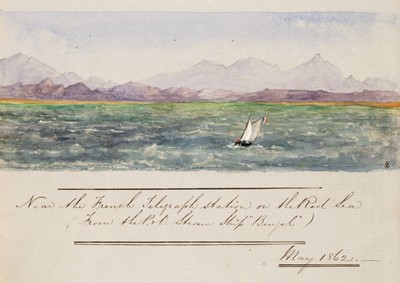 8
Near the French Telegraph Station on the Red Sea
(From the P.O. Steam Ship "Bengal")
May 1862.